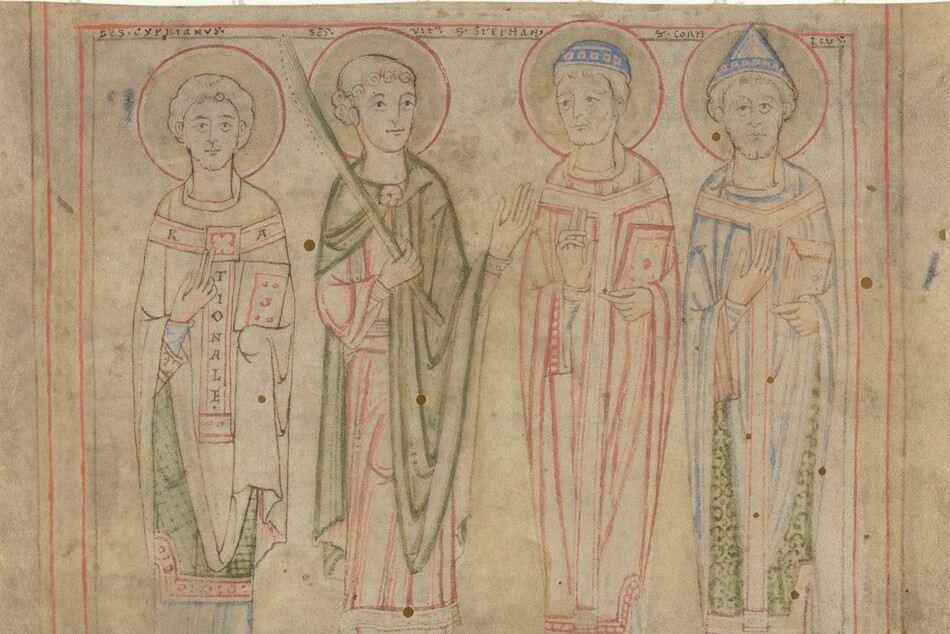 SCS · CYPRIANVS · SCS · VIT · S · STEPHAN · S · CORN ELIVS ·
R A
T
I
O
N
A
L
E ·